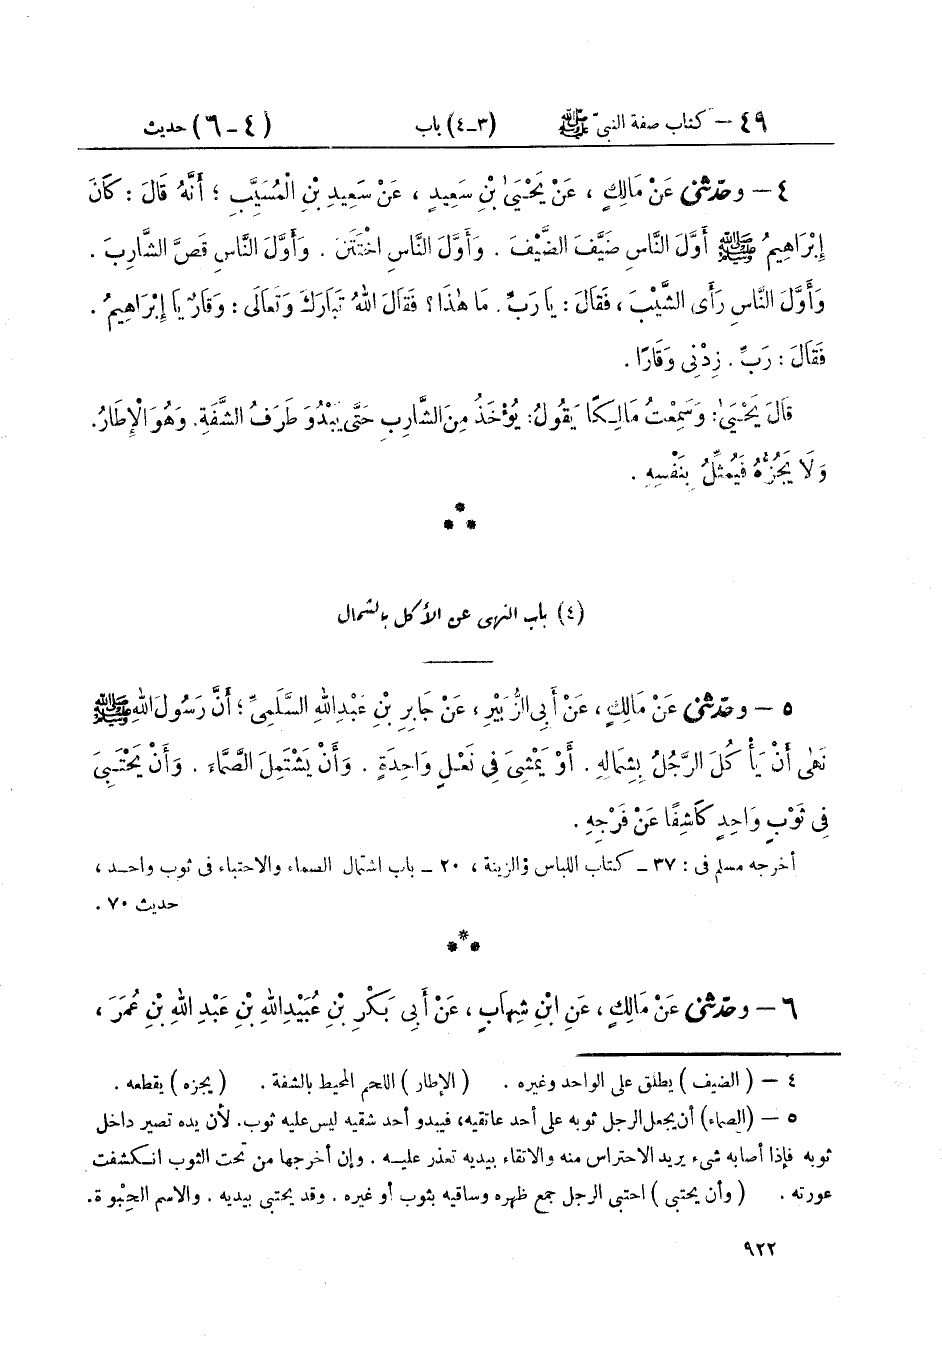 ٤٩ – كتاب صفة النبيّ ﷺ (٣-٤) باب (٤-٦) حديث
٤ – وحدّثنى عَنْ مَالِكٍ ، عَنْ يَحْيَىٰ بْنِ سَعِيدٍ ، عَنْ سَعِيدِ بْنِ الْمُسَيَّبِ ؛ أَنَّهُ قَالَ : كَانَ
إِبْرَاهِيمُ ﷺ أَوَّلَ النَّاسِ ضَيَّفَ الضَّيْفَ . وَأَوَّلَ النَّاسِ اخْتَتَنَ . وَأَوَّلَ النَّاسِ قَصَّ الشَّارِبَ .
وَأَوَّلَ النَّاسِ رَأَى الشَّيْبَ ، فَقَالَ : يَا رَبِّ . مَا هٰذَا ؟ فَقَالَ اللهُ تَبَارَكَ وَتَعَالَى : وَقَارٌ يَا إِبْرَاهِيمُ .
فَقَالَ : رَبِّ . زِدْنِى وَقَارًا .
قَالَ يَحْيَىٰ : وَسَمِعْتُ مَالِكًا يَقُولُ : يُؤْخَذُ مِنَ الشَّارِبِ حَتَّى يَبْدُوَ طَرَفُ الشَّفَةِ . وَهُوَ الْإِطَارُ .
وَلَا يَجُزُّهُ فَيُمَثِّلُ بِنَفْسِهِ .
***
(٤) باب النهى عن الأكل بالشمال
٥ – وحدّثنى عَنْ مَالِكٍ ، عَنْ أَبِى الزُّبَيْرِ ، عَنْ جَابِرِ بْنِ عَبْدِ اللهِ السَّلَمِىِّ ؛ أَنَّ رَسُولَ اللهِ ﷺ
نَهَى أَنْ يَأْكُلَ الرَّجُلُ بِشِمَالِهِ . أَوْ يَمْشِىَ فِى نَعْلٍ وَاحِدَةٍ . وَأَنْ يَشْتَمِلَ الصَّمَّاءَ . وَأَنْ يَحْتَبِىَ
فِى ثَوْبٍ وَاحِدٍ كَاشِفًا عَنْ فَرْجِهِ .
أخرجه مسلم فى : ٣٧ ـ كتاب اللباس والزينة ، ٢٠ ـ باب اشتمال الصماء والاحتباء فى ثوب واحد ،
حديث ٧٠ .
***
٦ – وحدّثنى عَنْ مَالِكٍ ، عَنِ ابْنِ شِهَابٍ ، عَنْ أَبِى بَكْرِ بْنِ عُبَيْدِ اللهِ بْنِ عَبْدِ اللهِ بْنِ عُمَرَ ،
٤ – (الضيف) يطلق على الواحد وغيره . (الإطار) اللحم المحيط بالشفة . (يجزه) يقطعه .
٥ – (الصماء) أن يجعل الرجل ثوبه على أحد عاتقيه، فيبدو أحد شقيه ليس عليه ثوب. لأن يده تصير داخل
ثوبه فإذا أصابه شىء يريد الاحتراس منه والاتقاء بيديه تعذر عليه . وإن أخرجها من تحت الثوب انكشفت
عورته . (وأن يحتبى) احتبى الرجل جمع ظهره وساقيه بثوب أو غيره . وقد يحتبى بيديه . والاسم الحِبْوة.
٩٢٢